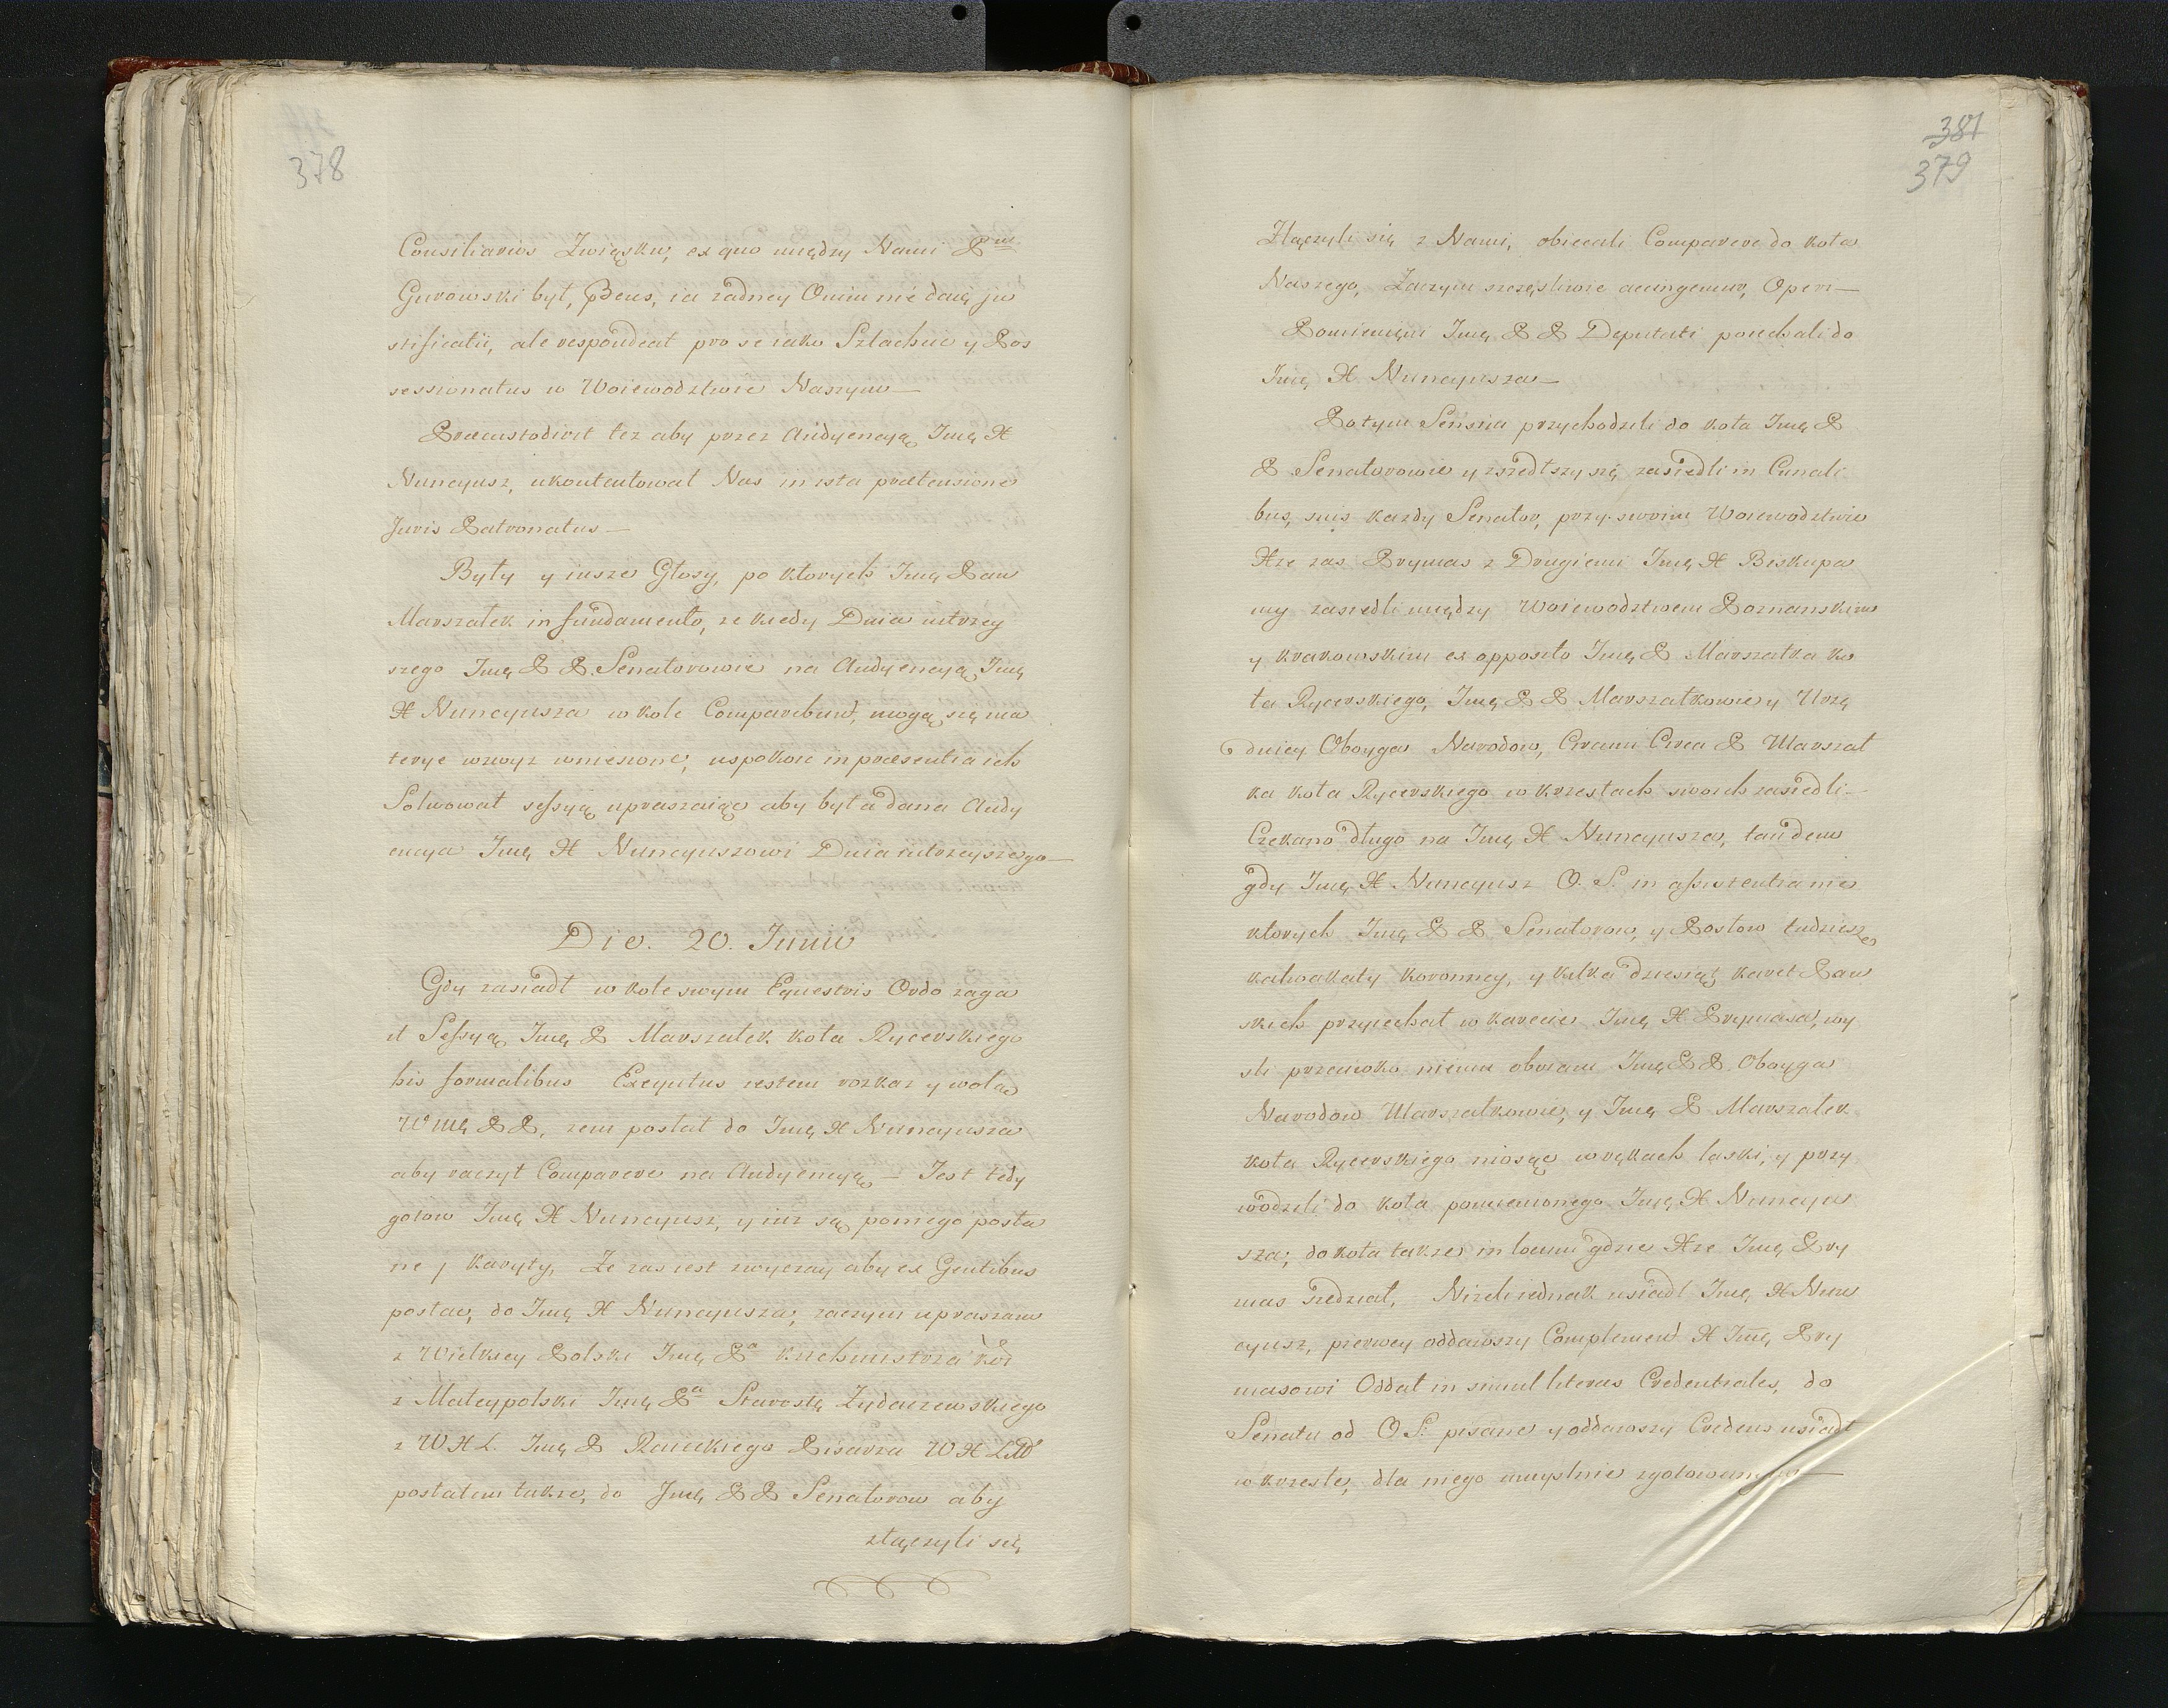 378
Consiliarios Związku, ex quo między Nami P.m
Gurowski był, Deus, ia żadney Onim nie daię ju
stificatii, ale respondeat pro se iako Szlachcic y Pos
sessionatus w Woiewodztwie Naszym —
Praecustodivit tez aby przez Audyencyą Jmę X
Nuncyusz, ukontentował Nas in ista praetensione
Juris Patronatus —
Były y insze Głosy, po ktorych Jmę Pan
Marszałek in fundamento, ze kiedy Dnia iutrzey
szego Jmę P P. Senatorowie na Audyencyą Jmę
X Nuncyusza w kole Comparebunt, mogą się ma
terye wzwyż wniesione, uspokoic in praesentia ich
Solwował sessyą upraszaiąc aby była dana Audy
encya Jmę X Nuncyuszowi Dnia iutrzeyszego —
Die. 20. Junii
Gdy zasiadł w kole swym Equestris Ordo zaga
ił Sessyą Jmę P Marszałek koła Rycerskiego
his formalibus Exequtus iestem rozkaz y wolą
WMę P P, zem posłał do Jmę X Nuncyusza
aby raczył Comparere na Audyencyą — Jest tedy
gotow Jmę X Nuncyusz, y iuz są poniego posła
ne j karyty, Ze zas iest zwyczay aby ex Gentibus
posłac, do Jmę X Nuncyusza, zaczym upraszam
z Wielkiey Polski Jmę P.a kuchmistrza kor
z Małeypolski Jmę P.a Starostę Zydaczewskiego
z W X L. Jmę P Raieckiego Pisarza W X Litt
posłałem takze, do Jmę P P Senatorow aby
złączyli się
381
379
Złączyli się z Nami, obiecali Comparere do koła
Naszego, Zaczym szczęsliwie accingemur, Operi —
Pomienieni Jmę P P Deputati poiechali do
Jmę X Nuncyusza —
Potym Sensim przychodzili do koła Jmę P
P Senatorowie y zszedłszy się zasiedli in Curuli
bus, suis kazdy Senator, przy swoim Woiewodztwie
Xże zas Prymas z Drugiemi Jmę X Biskupa
my zasiedli między Woiewodztwem Poznanskim
y krakowskim ex opposito Jmę P Marszałka ko
ła Rycerskiego, Jmę P P Marszałkowie y Urzę
dnicy Oboyga Narodow, Circum Circa P Marszał
ka koła Rycerskiego w krzesłach swoich zasiedli —
Czekano długo na Jmę X Nuncyusza, tandem
gdy Jmę X Nuncyusz O. S. in assistentia nie
ktorych Jmę P P Senatorow, y Posłow tudziesz
kalwakaty koronney, y kilka dziesiąt karet Pan
skich przyiechał w karecie Jmę X Prymasa, wy
śli przeciwko niemu obrani Jmę P P. Oboyga
Narodow Marszałkowie, y Jmę P Marszałek
koła Rycerskiego niosąc w rękach laski, y przy
wodzili do koła pomienionego Jmę X Nuncyu
sza, do koła także in locum gdzie Xże Jmę Pry
mas siedział, Nizeli iednak usiadł Jmę X Nun
cyusz, pierwey oddawszy Complement X Jmę Pry
masowi Oddał in simul literas Credentiales, do
Senatu od O. S. pisane y oddawszy Credens usiadł
w krzesle, dla niego umyslnie zgotowanym —